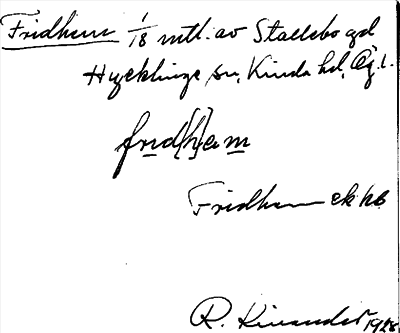 Fridhem 1/18 mtl. av Stallebo gd
Hycklinge sn, Kinda hd, Ög. l.
frid[h]em
Fridhem ek hb
R. Kinander 1928